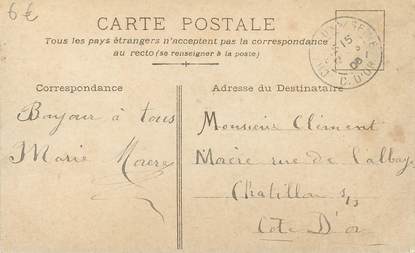 6€
CARTE POSTALE
Tous les pays étrangers n'acceptent pas la correspondance
au recto (se renseigner à la poste)
Correspondance
Bonjour à tous
Marie
Adresse du Destinataire
Monsieur Clément
rue de l'albaye
Chatillon s/s
Cote D'or
15
08
C. D'OR